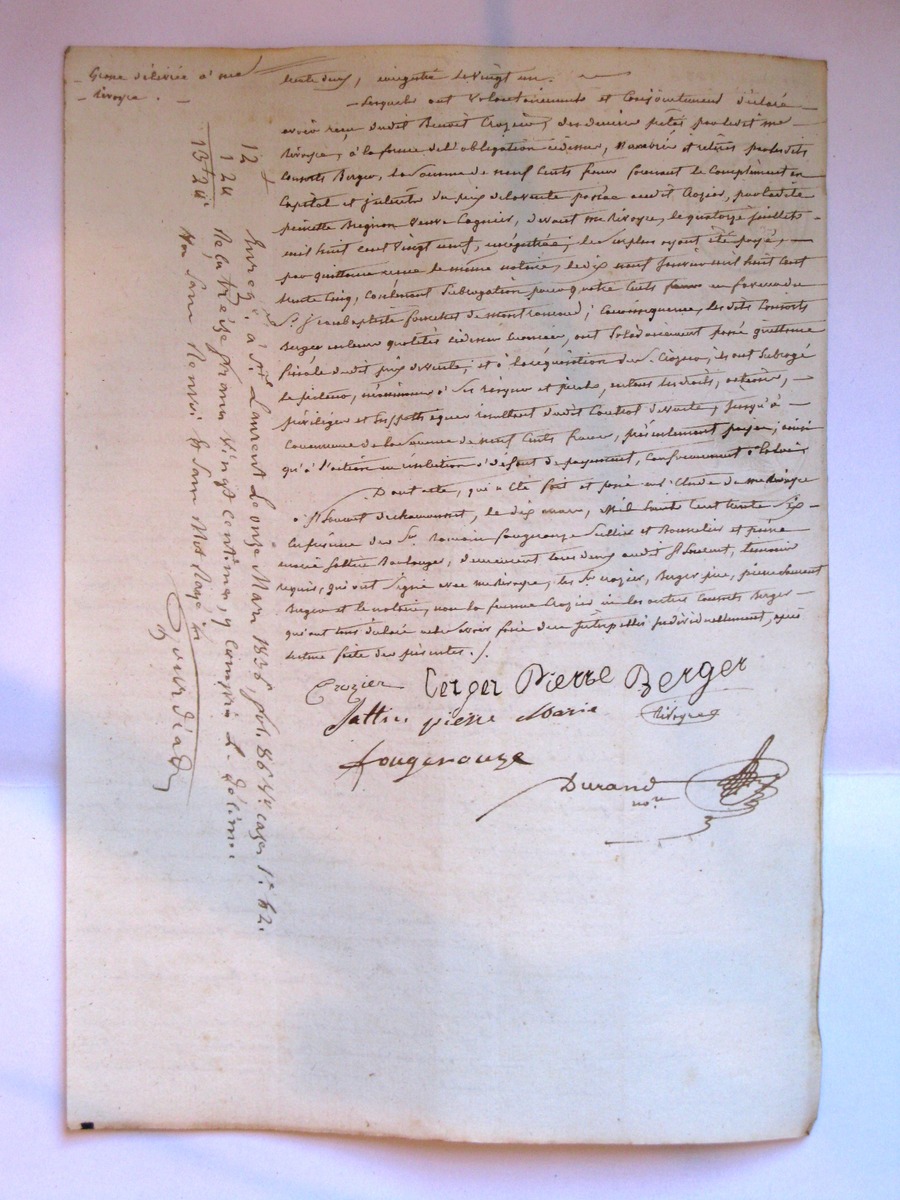 Grosse délivrée à me
Rivoyre.
trente deux, enregistré le vingt un.
Lesquels ont volontairement et conjointement déclaré
avoir reçu dudit Benoit Crozier, des deniers prêtés par ledit me
Rivoyre, à la forme de l'obligation ci dessus, nombrés et retirés par les dits
consorts Berger, la somme de neuf cents francs formant le complément en
capital et intérêts du prix de la vente passée audit Crozier, par ladite
veuve devant me Rivoyre, le quatorze juillet
mil huit cent vingt neuf, enregistrée, le surplus ayant été payé,
par quittance reçue le même notaire, le dix neuf janvier mil huit cent
trente cinq, contenant subrogation pour quatre cents francs en faveur du
Sr. Jean baptiste de ; en conséquence, les dits consorts
Berger en leurs qualités ci dessus énoncées, ont solidairement passé quittance
finale dudit prix de vente; et à la réquisition du Sr. Crozier, ils ont subrogé
le prêteur, néanmoins à ses risques et périls, en tous les droits, actions,
privilèges et hypothèques résultant dudit contrat de vente, jusqu'à
concurrence de la somme de neuf cents francs, présentement payée, ainsi
qu'à l'action en résolution à défaut de payement, conformément à la loi.
Dont acte, qui a été fait et passé en l'étude de me Rivoyre
à St. Laurent de chamousset, le dix mars, mil huit cent trente six
en présence des Sr. Romain Fougerouze Sellier et Bourrelier et pierre
marie Boulanger, demeurant tous deux audit St Laurent, témoins
requis, qui ont signé avec me Rivoyre, les Srs Crozier, Berger père, pierre
Berger et le notaire, non la femme Crozier ni les autres consorts Berger
qui ont tous déclaré ne le savoir faire de ce interpellés individuellement, après
lecture faite des présentes.
Crozier Berger Pierre Berger
pierre Marie Rivoyre
fougerouze
Durand
nore
12
1 20
13 20
Enreg. à St. Laurent le onze Mars 1836, fol. 86 Vo. cases 1re & 2.
Reçu treize francs vingt centimes, y compris le décime.
Non sans Renvoi & sans Mot Rayé